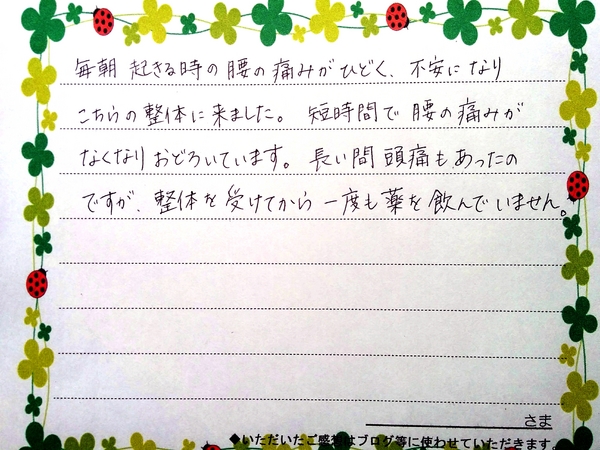 毎朝 起きる時の腰の痛みがひどく、不安になり
こちらの整体に来ました。 短時間で腰の痛みが
なくなりおどろいています。長い間頭痛もあったの
ですが、整体を受けてから一度も薬を飲んでいません。
さま
◆いただいたご感想はブログ等に使わせていただきます。